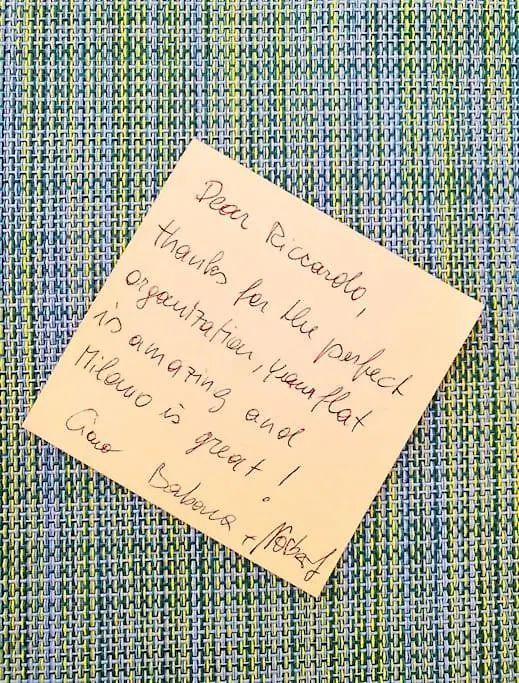 Dear Riccardo,
thanks for the perfect
organization, your flat
is amazing and
Milano is great!
Ciao
Babara + Norbert